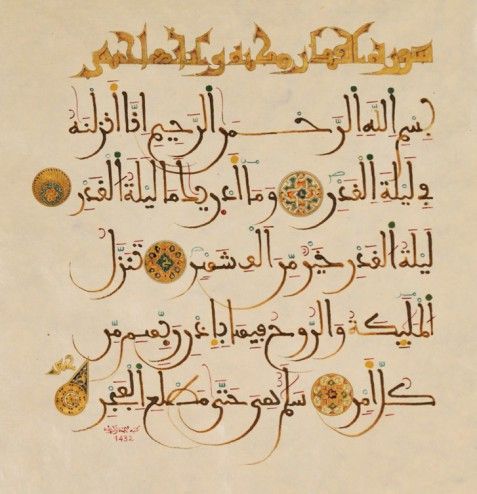 سورة القدر مكية وءاياتها خمس
بِسْمِ اللَّهِ الرَّحْمَٰنِ الرَّحِيمِ إِنَّا أَنزَلْنَٰهُ
فِي لَيْلَةِ الْقَدْرِ وَمَا أَدْرَيٰكَ مَا لَيْلَةُ الْقَدْرِ
لَيْلَةُ الْقَدْرِ خَيْرٌ مِّنْ أَلْفِ شَهْرٍ تَنَزَّلُ
الْمَلَٰئِكَةُ وَالرُّوحُ فِيهَا بِإِذْنِ رَبِّهِم مِّن
كُلِّ أَمْرٍ سَلَٰمٌ هِيَ حَتَّىٰ مَطْلَعِ الْفَجْرِ
1432